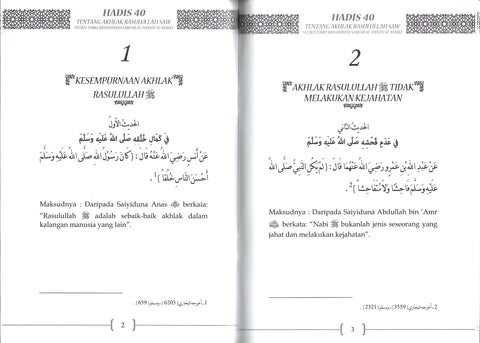 HADIS 40
TENTANG AKHLAK RASULULLAH SAW
1
KESEMPURNAAN AKHLAK
RASULULLAH ﷺ
الحديث الأول
في كمال خلقه صلى الله عليه وسلم
عَنْ أَنَسٍ رَضِيَ اللهُ عَنْهُ قَالَ: (كَانَ رَسُولُ اللهِ صَلَّى اللهُ عَلَيْهِ وَسَلَّمَ
أَحْسَنَ النَّاسِ خُلُقًا) ¹.
Maksudnya : Daripada Saiyiduna Anas berkata:
"Rasulullah ﷺ adalah sebaik-baik akhlak dalam
kalangan manusia yang lain".
1ـ أخرجه البخاري (6203)، ومسلم (659).
2
HADIS 40
TENTANG AKHLAK RASULULLAH SAW
2
AKHLAK RASULULLAH ﷺ TIDAK
MELAKUKAN KEJAHATAN
الحديث الثاني
في عدم فحشه صلى الله عليه وسلم
عَنْ عَبْدِ اللهِ بْنِ عَمْرٍو رَضِيَ اللهُ عَنْهُمَا قَالَ: (لَمْ يَكُنِ النَّبِيُّ صَلَّى اللهُ
عَلَيْهِ وَسَلَّمَ فَاحِشًا وَلَا مُتَفَاحِشًا) ².
Maksudnya : Daripada Saiyiduna Abdullah bin 'Amr
berkata: "Nabi ﷺ bukanlah jenis seseorang yang
jahat dan melakukan kejahatan".
2ـ أخرجه البخاري (3559)، ومسلم (2321).
3